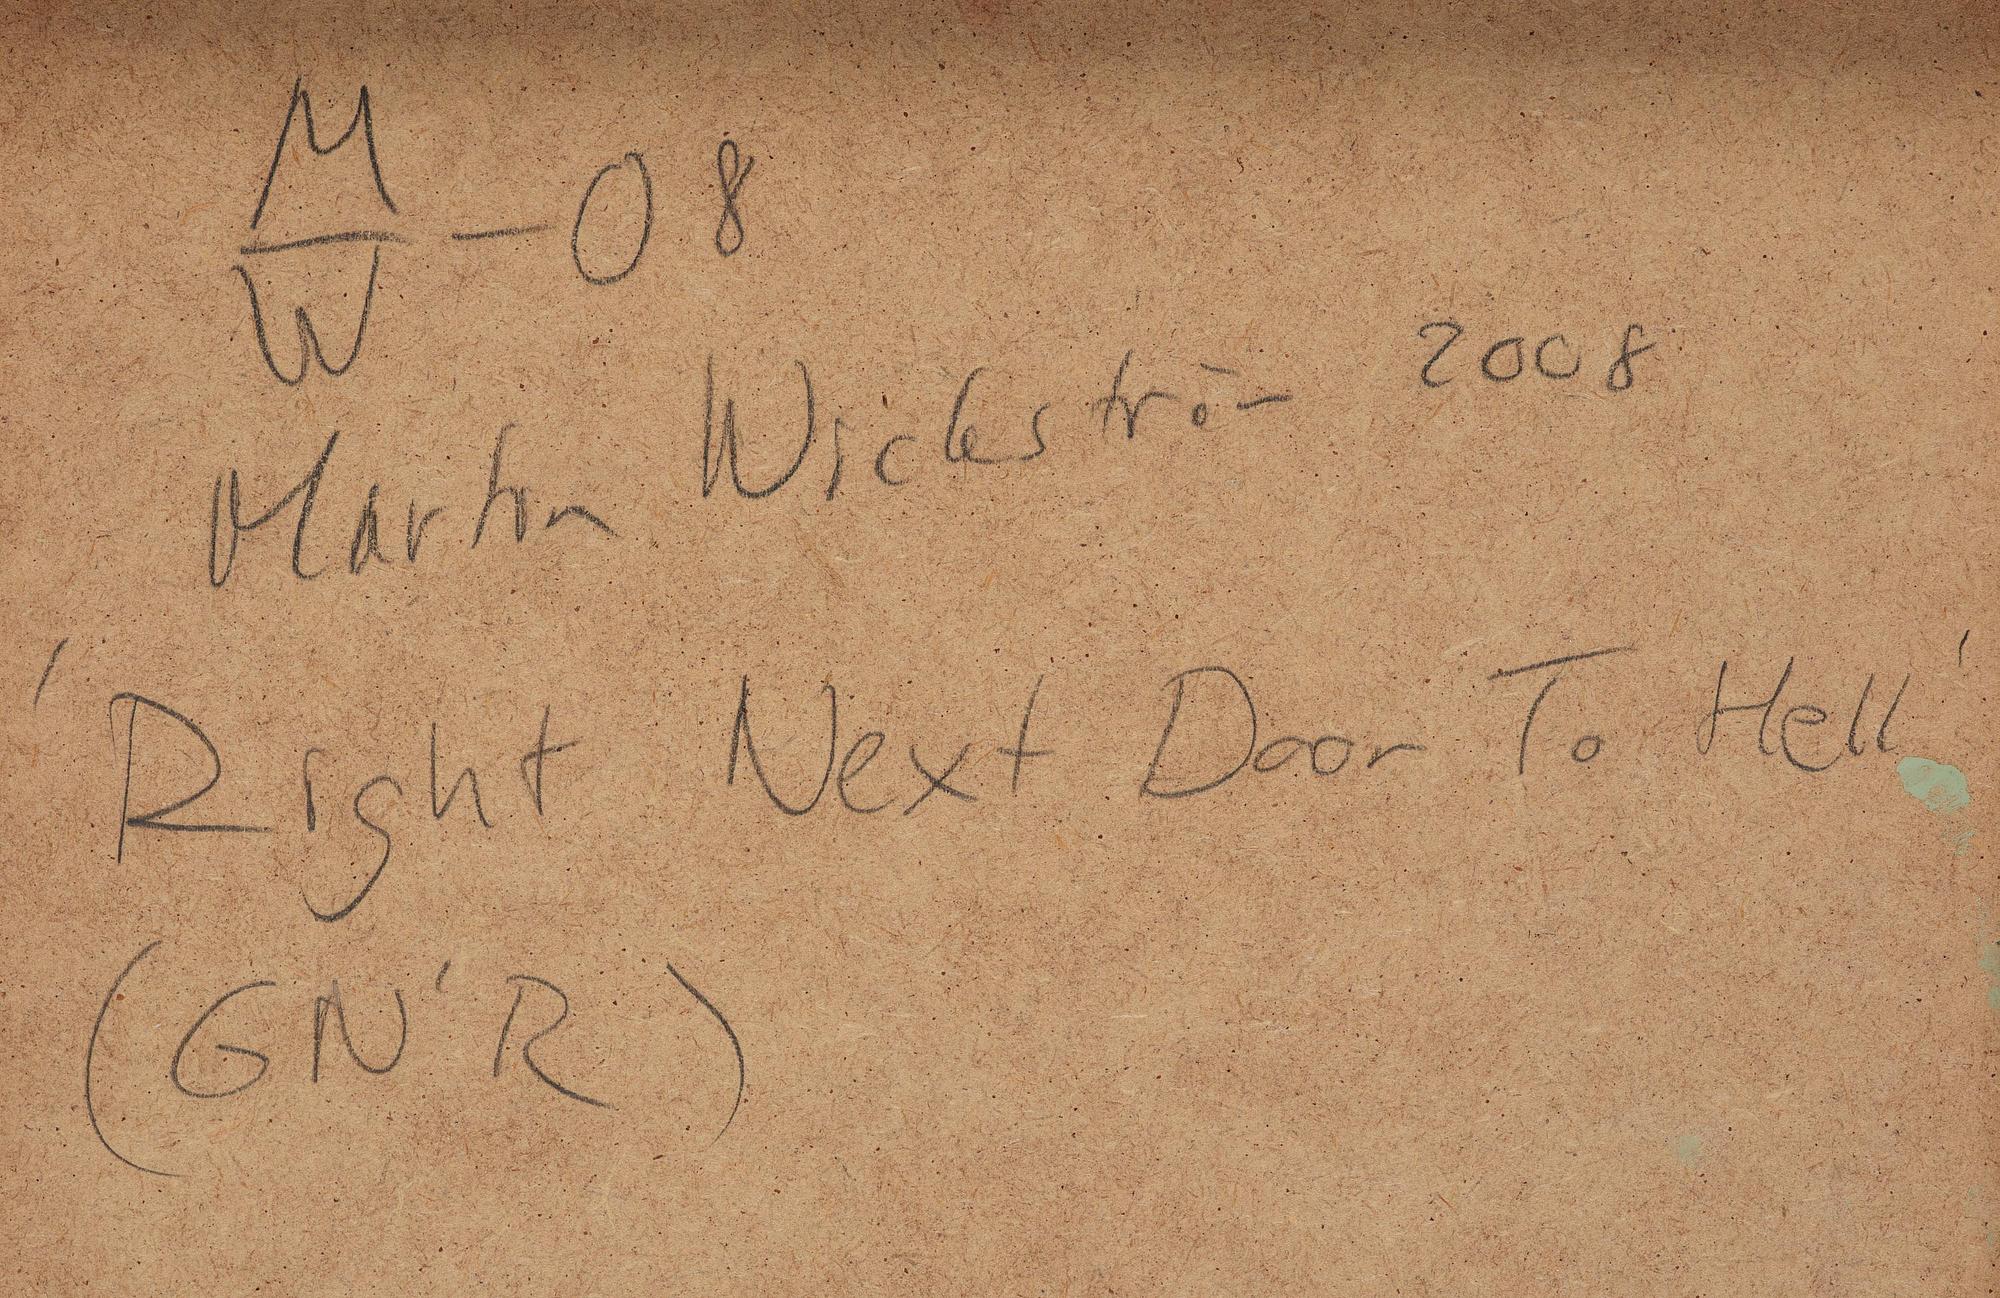 M
W -08
Martin Wickström 2008
'Right Next Door To Hell'
(GN'R)